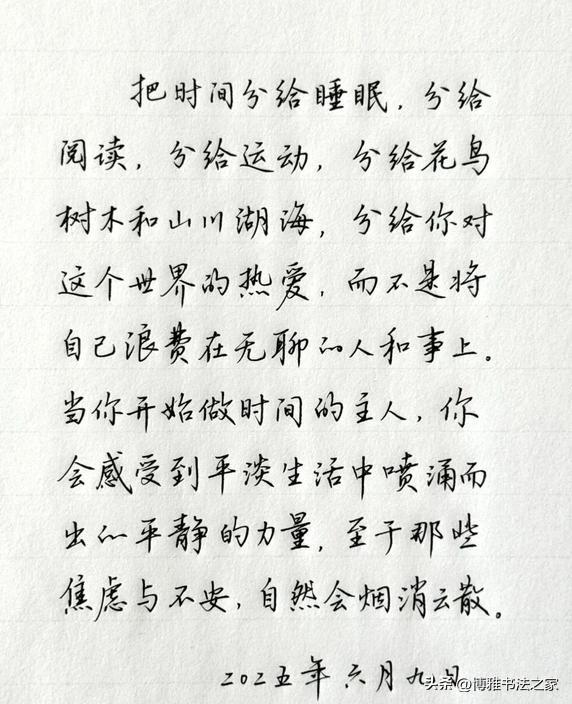 把时间分给睡眠，分给
阅读，分给运动，分给花鸟
树木和山川湖海，分给你对
这个世界的热爱，而不是将
自己浪费在无聊的人和事上。
当你开始做时间的主人，你
会感受到平淡生活中喷涌而
出的平静的力量，至于那些
焦虑与不安，自然会烟消云散。
2025五年六月九日
头条@博雅书法之家